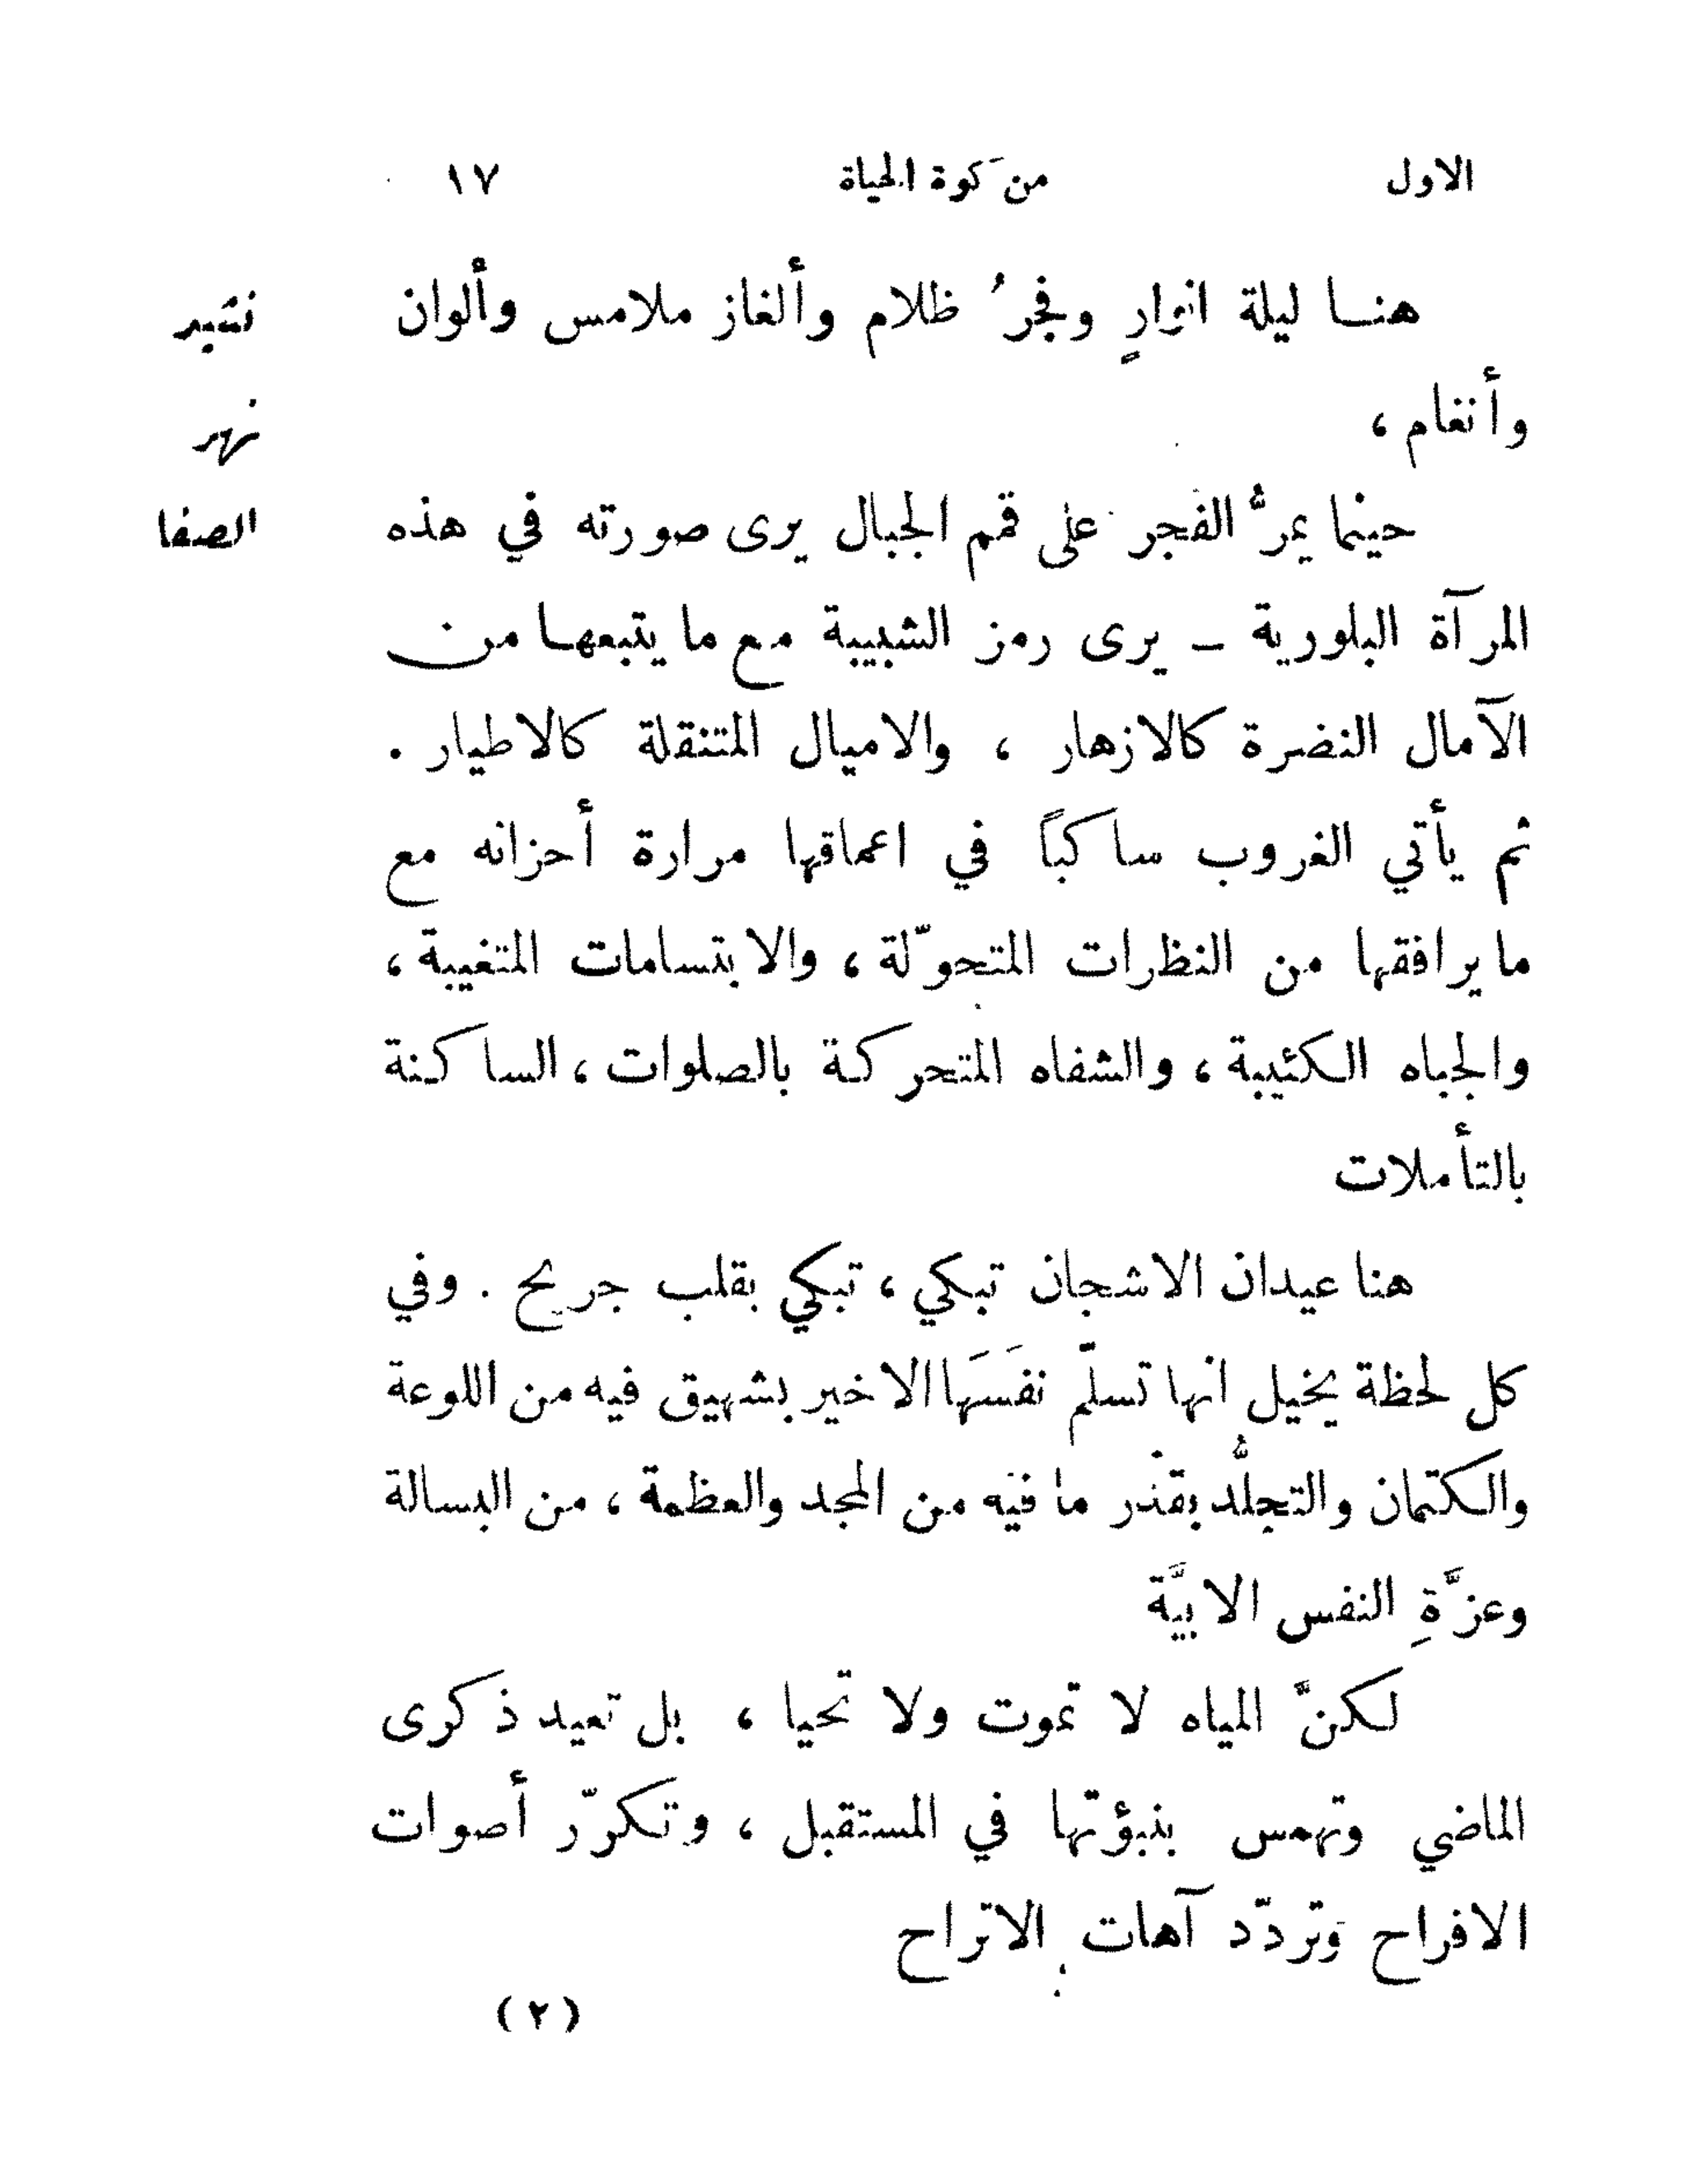 الاول من كوة الحياة ١٧
هنا ليلة انوارٍ وفجرُ ظلام وألغاز ملامس وألوان
وأنغام ،
حينما يمرُّ الفجر على قمم الجبال يرى صورته في هذه
المرآة البلورية – يرى رمز الشبيبة مع ما يتبعها من
الآمال النضرة كالازهار ، والاميال المتنقلة كالاطيار .
ثم يأتي الغروب ساكباً في اعماقها مرارة أحزانه مع
ما يرافقها من النظرات المتحوّلة ، والابتسامات المتغيبة ،
والجباه الكئيبة ، والشفاه المتحركة بالصلوات ، الساكنة
بالتأملات
هنا عيدان الاشجان تبكي ، تبكي بقلب جريح . وفي
كل لحظة يخيل انها تسلّم نفَسَها الاخير بشهيق فيه من اللوعة
والكتمان والتجلُّد بقدر ما فيه من المجد والعظمة ، من البسالة
وعزَّةِ النفس الابيَّة
لكنَّ المياه لا تموت ولا تحيا ، بل تعيد ذكرى
الماضي وتهمس بنبؤتها في المستقبل ، وتكرّر أصوات
الافراح وتردّد آهات الاتراح
(٢)
نشيد
نهر
الصفا